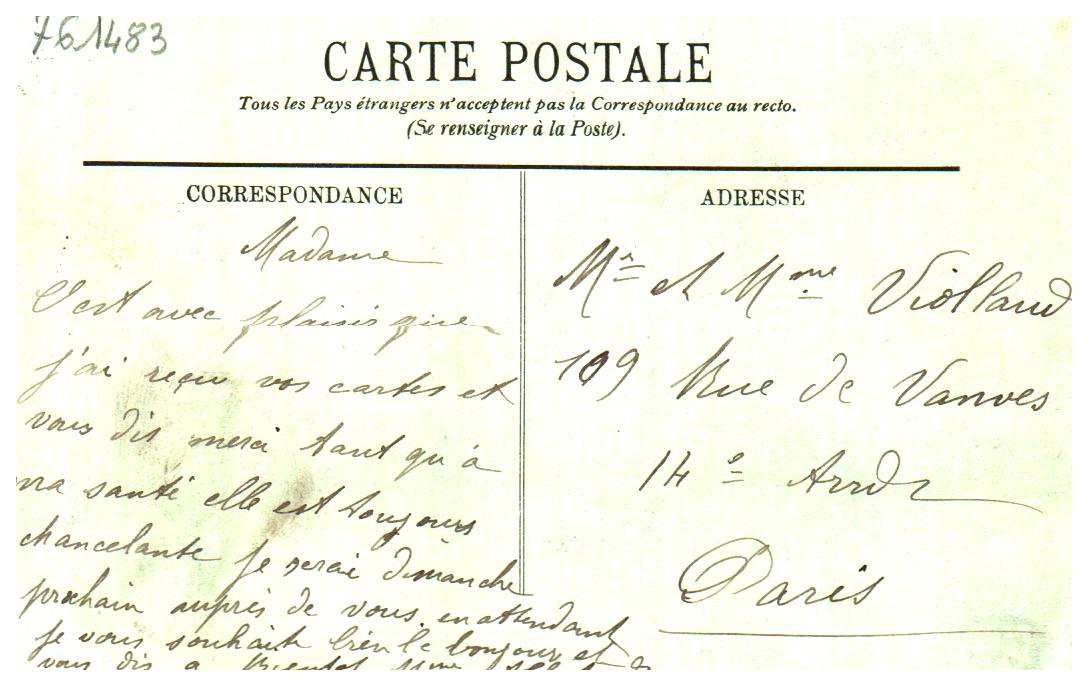 761483
CARTE POSTALE
Tous les Pays étrangers n'acceptent pas la Correspondance au recto.
(Se renseigner à la Poste).
CORRESPONDANCE
Madame
C'est avec plaisir que
j'ai reçu vos cartes et
vous dis merci tant qu'à
ma santé elle est toujours
chancelante je serai dimanche
prochain auprès de vous. en attendant
je vous souhaite bien le bonjour et
vous dis a Bientot
ADRESSE
Mr et Mme Violland
109 Rue de Vanves
14e Arrdt
Paris